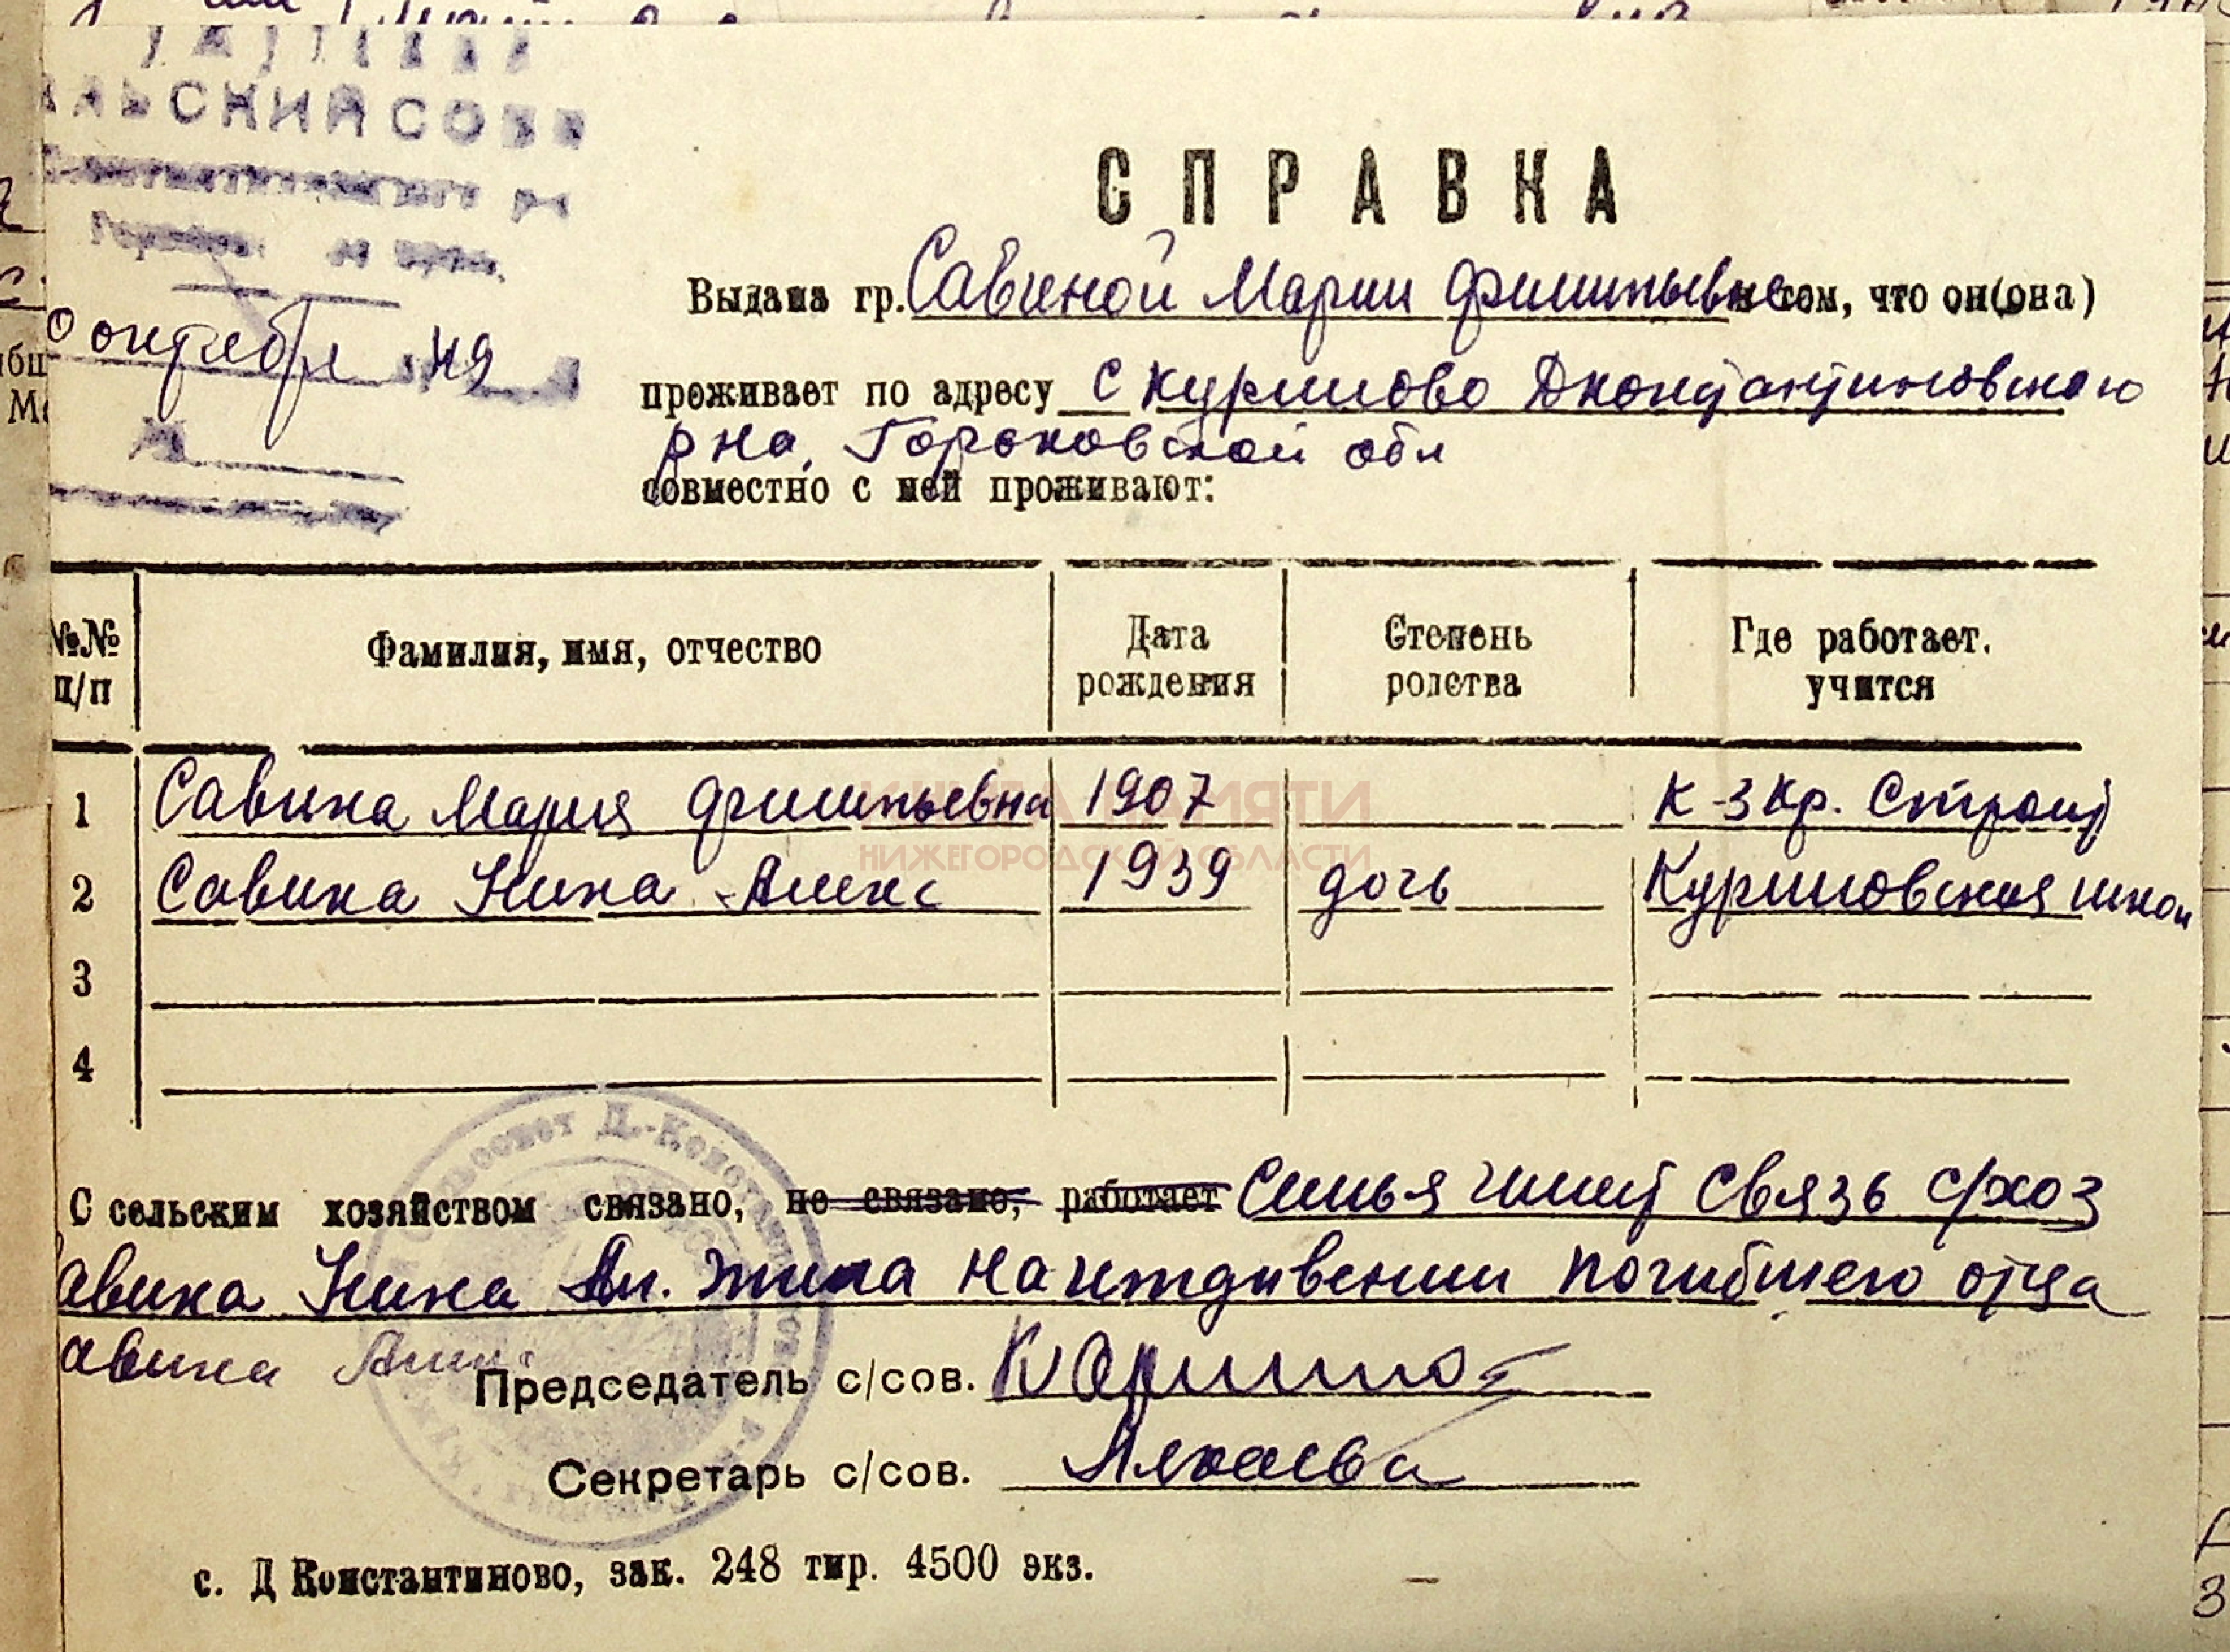 СПРАВКА
Выдана гр. Савиной Марии Филипьевне в том, что он(она)
проживает по адресу с Куришово Дконстантиновского
рна, Горьковской обл
совместно с ней проживают:
октября 49
№№ п/п Фамилия, имя, отчество Дата рождения Степень родства Где работает. учится
1 Савина Мария Филипьевна 1907 К-з Кр. Строит
2 Савина Нина Алекс 1939 дочь
3
4
КНИГА ПАМЯТИ
НИЖЕГОРОДСКОЙ ОБЛАСТИ
С сельским хозяйством связано, не связано, работает Семья имеет связь с/хоз
авина Нина Ал. жила на иждивении погибшего отца
авина
Председатель с/сов.
Секретарь с/сов.
с. Д Константиново, зак. 248 тир. 4500 экз.